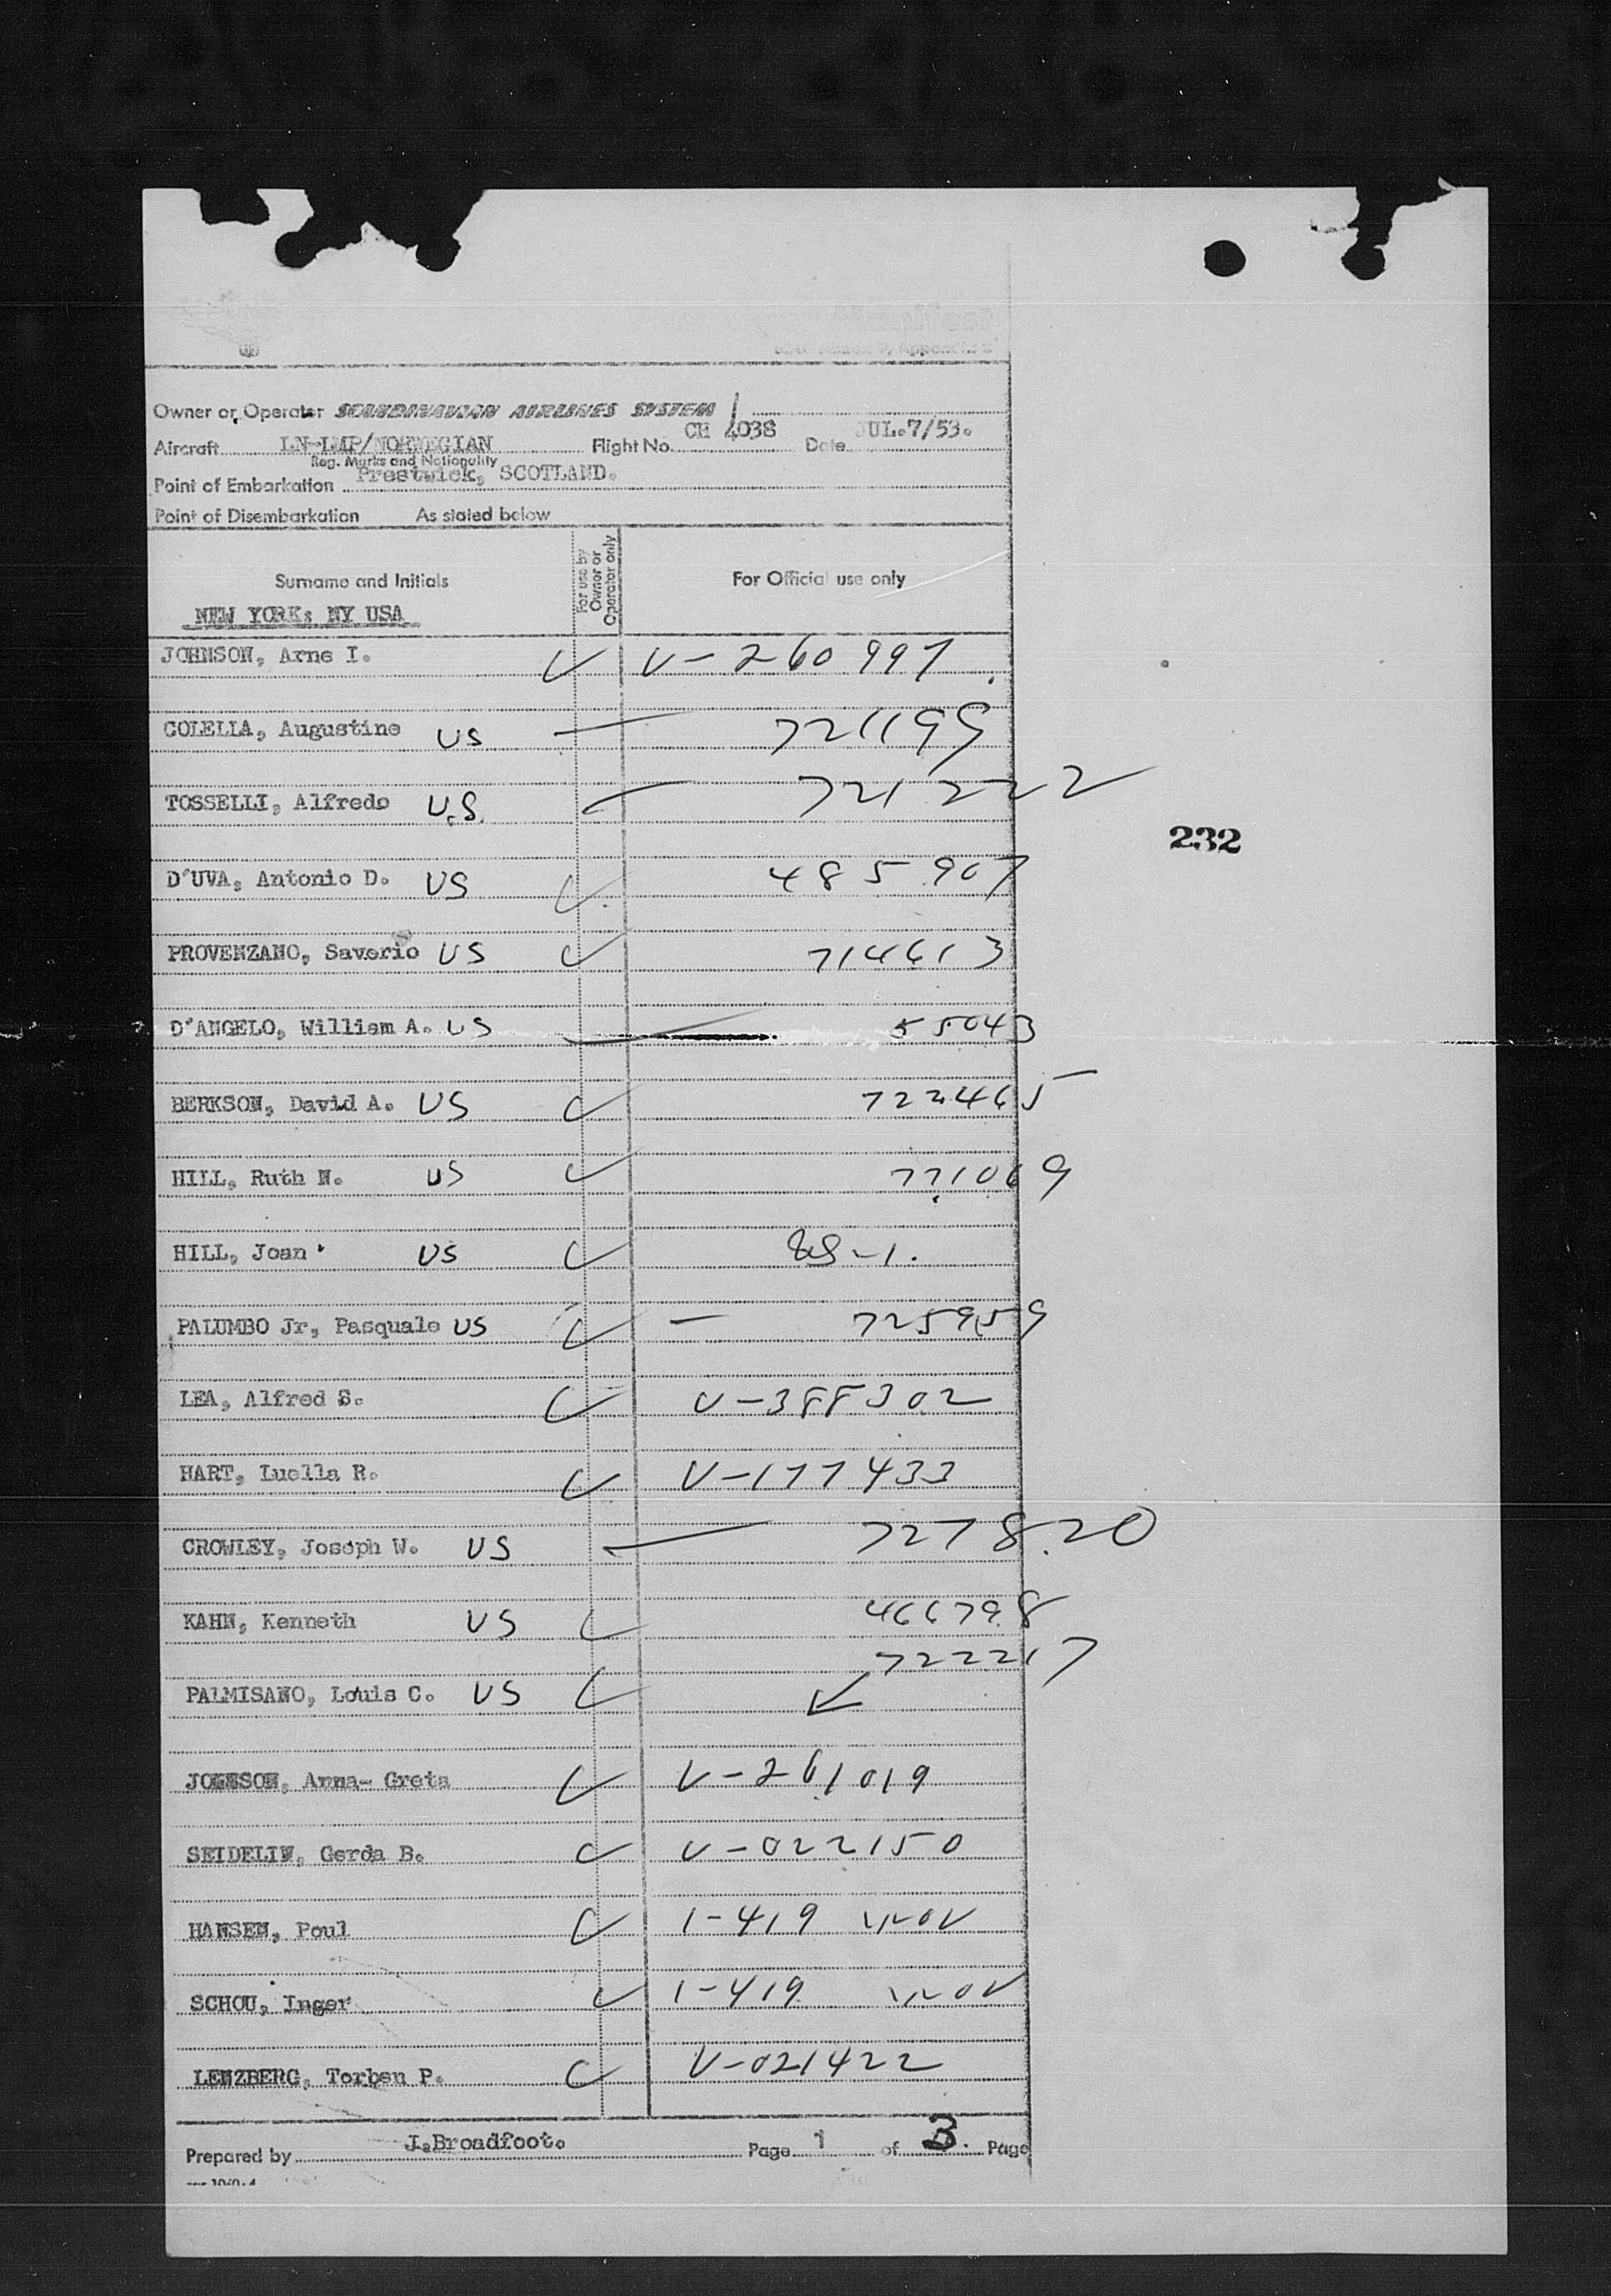 Owner or Operator SCANDINAVIAN AIRLINES SYSTEM
Aircraft LN-LMP/NORWEGIAN Flight No. CH 4038 Date JUL.7/53.
Reg. Marks and Nationality
Point of Embarkation Prestwick, SCOTLAND.
Point of Disembarkation As stated below
Surname and Initials For use by Owner or Operator only For Official use only
NEW YORK: NY USA
JOHNSON, Arne I. V-260997
COLELLA, Augustine US 721195
TOSSELLI, Alfredo U.S. 721222
232
D'UVA, Antonio D. US 485907
PROVENZANO, Saverio US 714613
D'ANGELO, William A. US 55043
BERKSON, David A. US 722465
HILL, Ruth N. US 771069
HILL, Joan US US-1.
PALUMBO Jr, Pasquale US 725959
LEA, Alfred S. V-388302
HART, Luella R. V-177433
CROWLEY, Joseph W. US 727820
KAHN, Kenneth US 466798
722217
PALMISANO, Louis C. US
JOHNSON, Anna- Greta V-261019
SEIDELIN, Gerda B. V-022150
HANSEN, Poul 1-419
SCHOU, Inger 1-419
LENZBERG, Torben P. V-021422
Prepared by J.Broadfoot. Page 1 of 3. Page